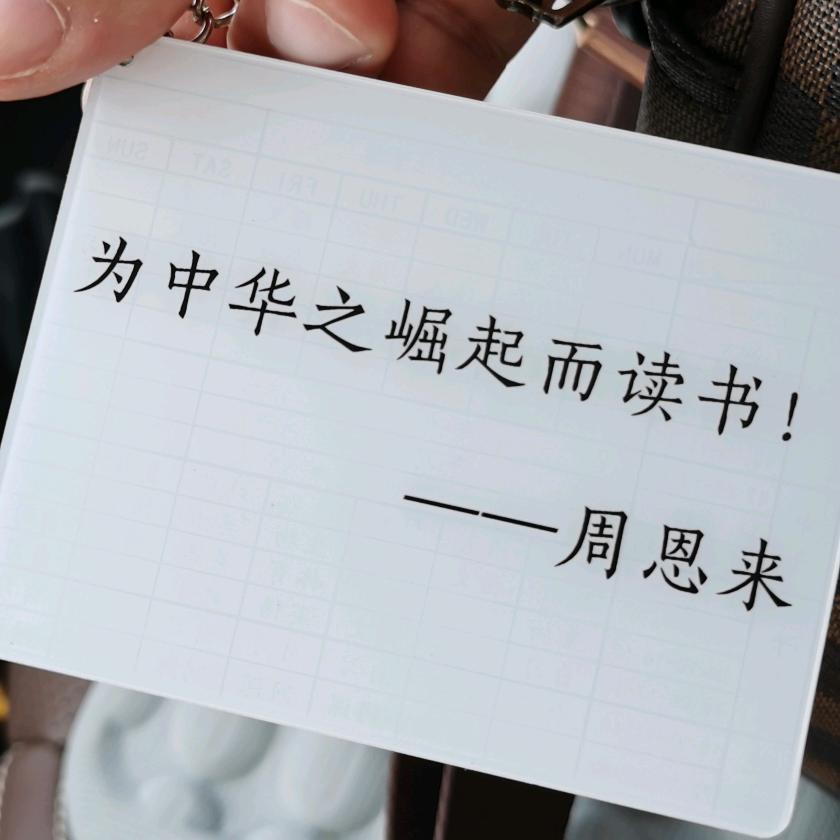 SUN SAT FRI THU WED MON
为中华之崛起而读书！
——周恩来